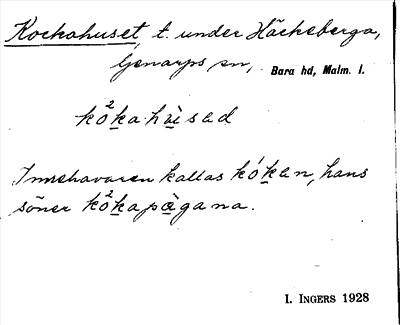 Kockahuset, t. under Häckeberga,
Genarps sn, Bara hd, Malm. l.
kò²ka hùsəd
Innehavaren kallas kókən, hans
söner kò²kapàgana.
I. INGERS 1928